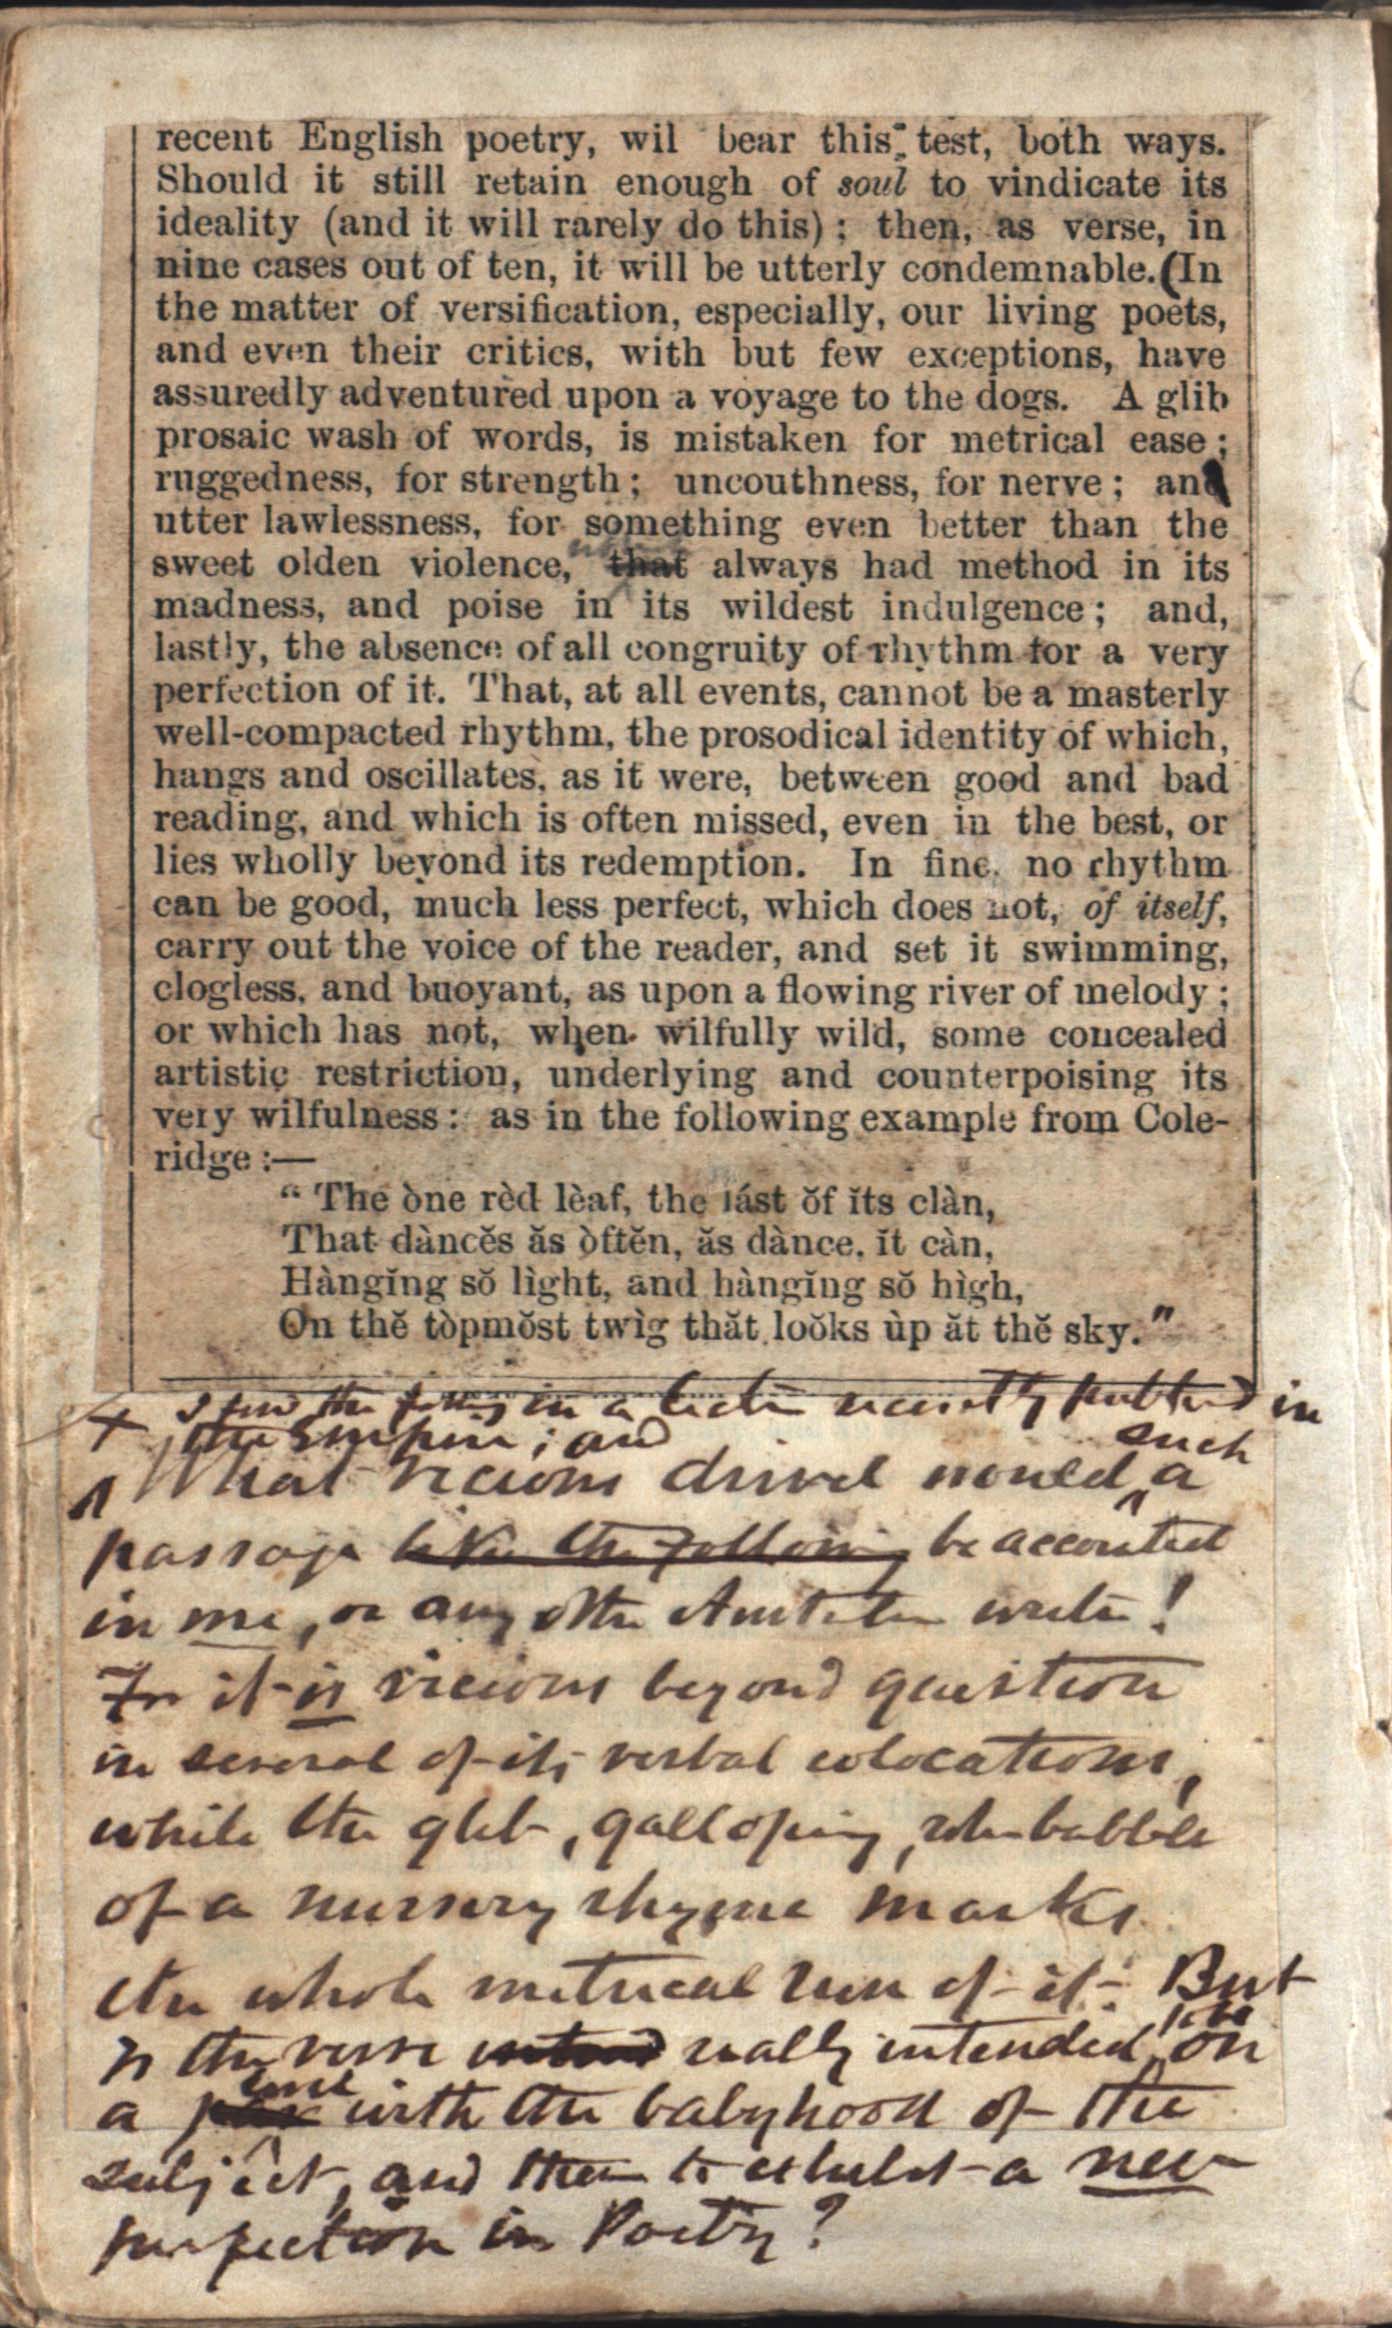 recent English poetry, wil bear this test, both ways.
Should it still retain enough of soul to vindicate its
ideality (and it will rarely do this) ; then, as verse, in
nine cases out of ten, it will be utterly condemnable. (In
the matter of versification, especially, our living poets,
and even their critics, with but few exceptions, have
assuredly adventured upon a voyage to the dogs. A glib
prosaic wash of words, is mistaken for metrical ease ;
ruggedness, for strength ; uncouthness, for nerve ; and
utter lawlessness, for something even better than the
sweet olden violence, that always had method in its
madness, and poise in its wildest indulgence ; and,
lastly, the absence of all congruity of rhythm for a very
perfection of it. That, at all events, cannot be a masterly
well-compacted rhythm, the prosodical identity of which,
hangs and oscillates, as it were, between good and bad
reading, and which is often missed, even in the best, or
lies wholly beyond its redemption. In fine, no rhythm
can be good, much less perfect, which does not, of itself,
carry out the voice of the reader, and set it swimming,
clogless, and buoyant, as upon a flowing river of melody ;
or which has not, when wilfully wild, some concealed
artistic restriction, underlying and counterpoising its
very wilfulness : as in the following example from Cole-
ridge :—
“ The òne rèd lèaf, the lást ŏf ĭts clàn,
That dàncĕs ăs òftĕn, ăs dànce, ĭt càn,
Hàngĭng sŏ lìght, and hàngĭng sŏ hìgh,
On thĕ tòpmŏst twìg thăt loŏks ùp ăt thĕ sky.”
I find the following in a lecture recently published in
the Empire ; and
such
What vicious drivel would a
passage like the following be accounted
in me, or any other Australian writer !
For it is vicious beyond question
in several of its verbal colocations,
while the glib, galloping,
of a nursery rhyme marks
the whole metrical run of it. But
to be
is the verse really intended on
a with the babyhood of the
subject, and then to exhibit a new
perfection in Poetry ?